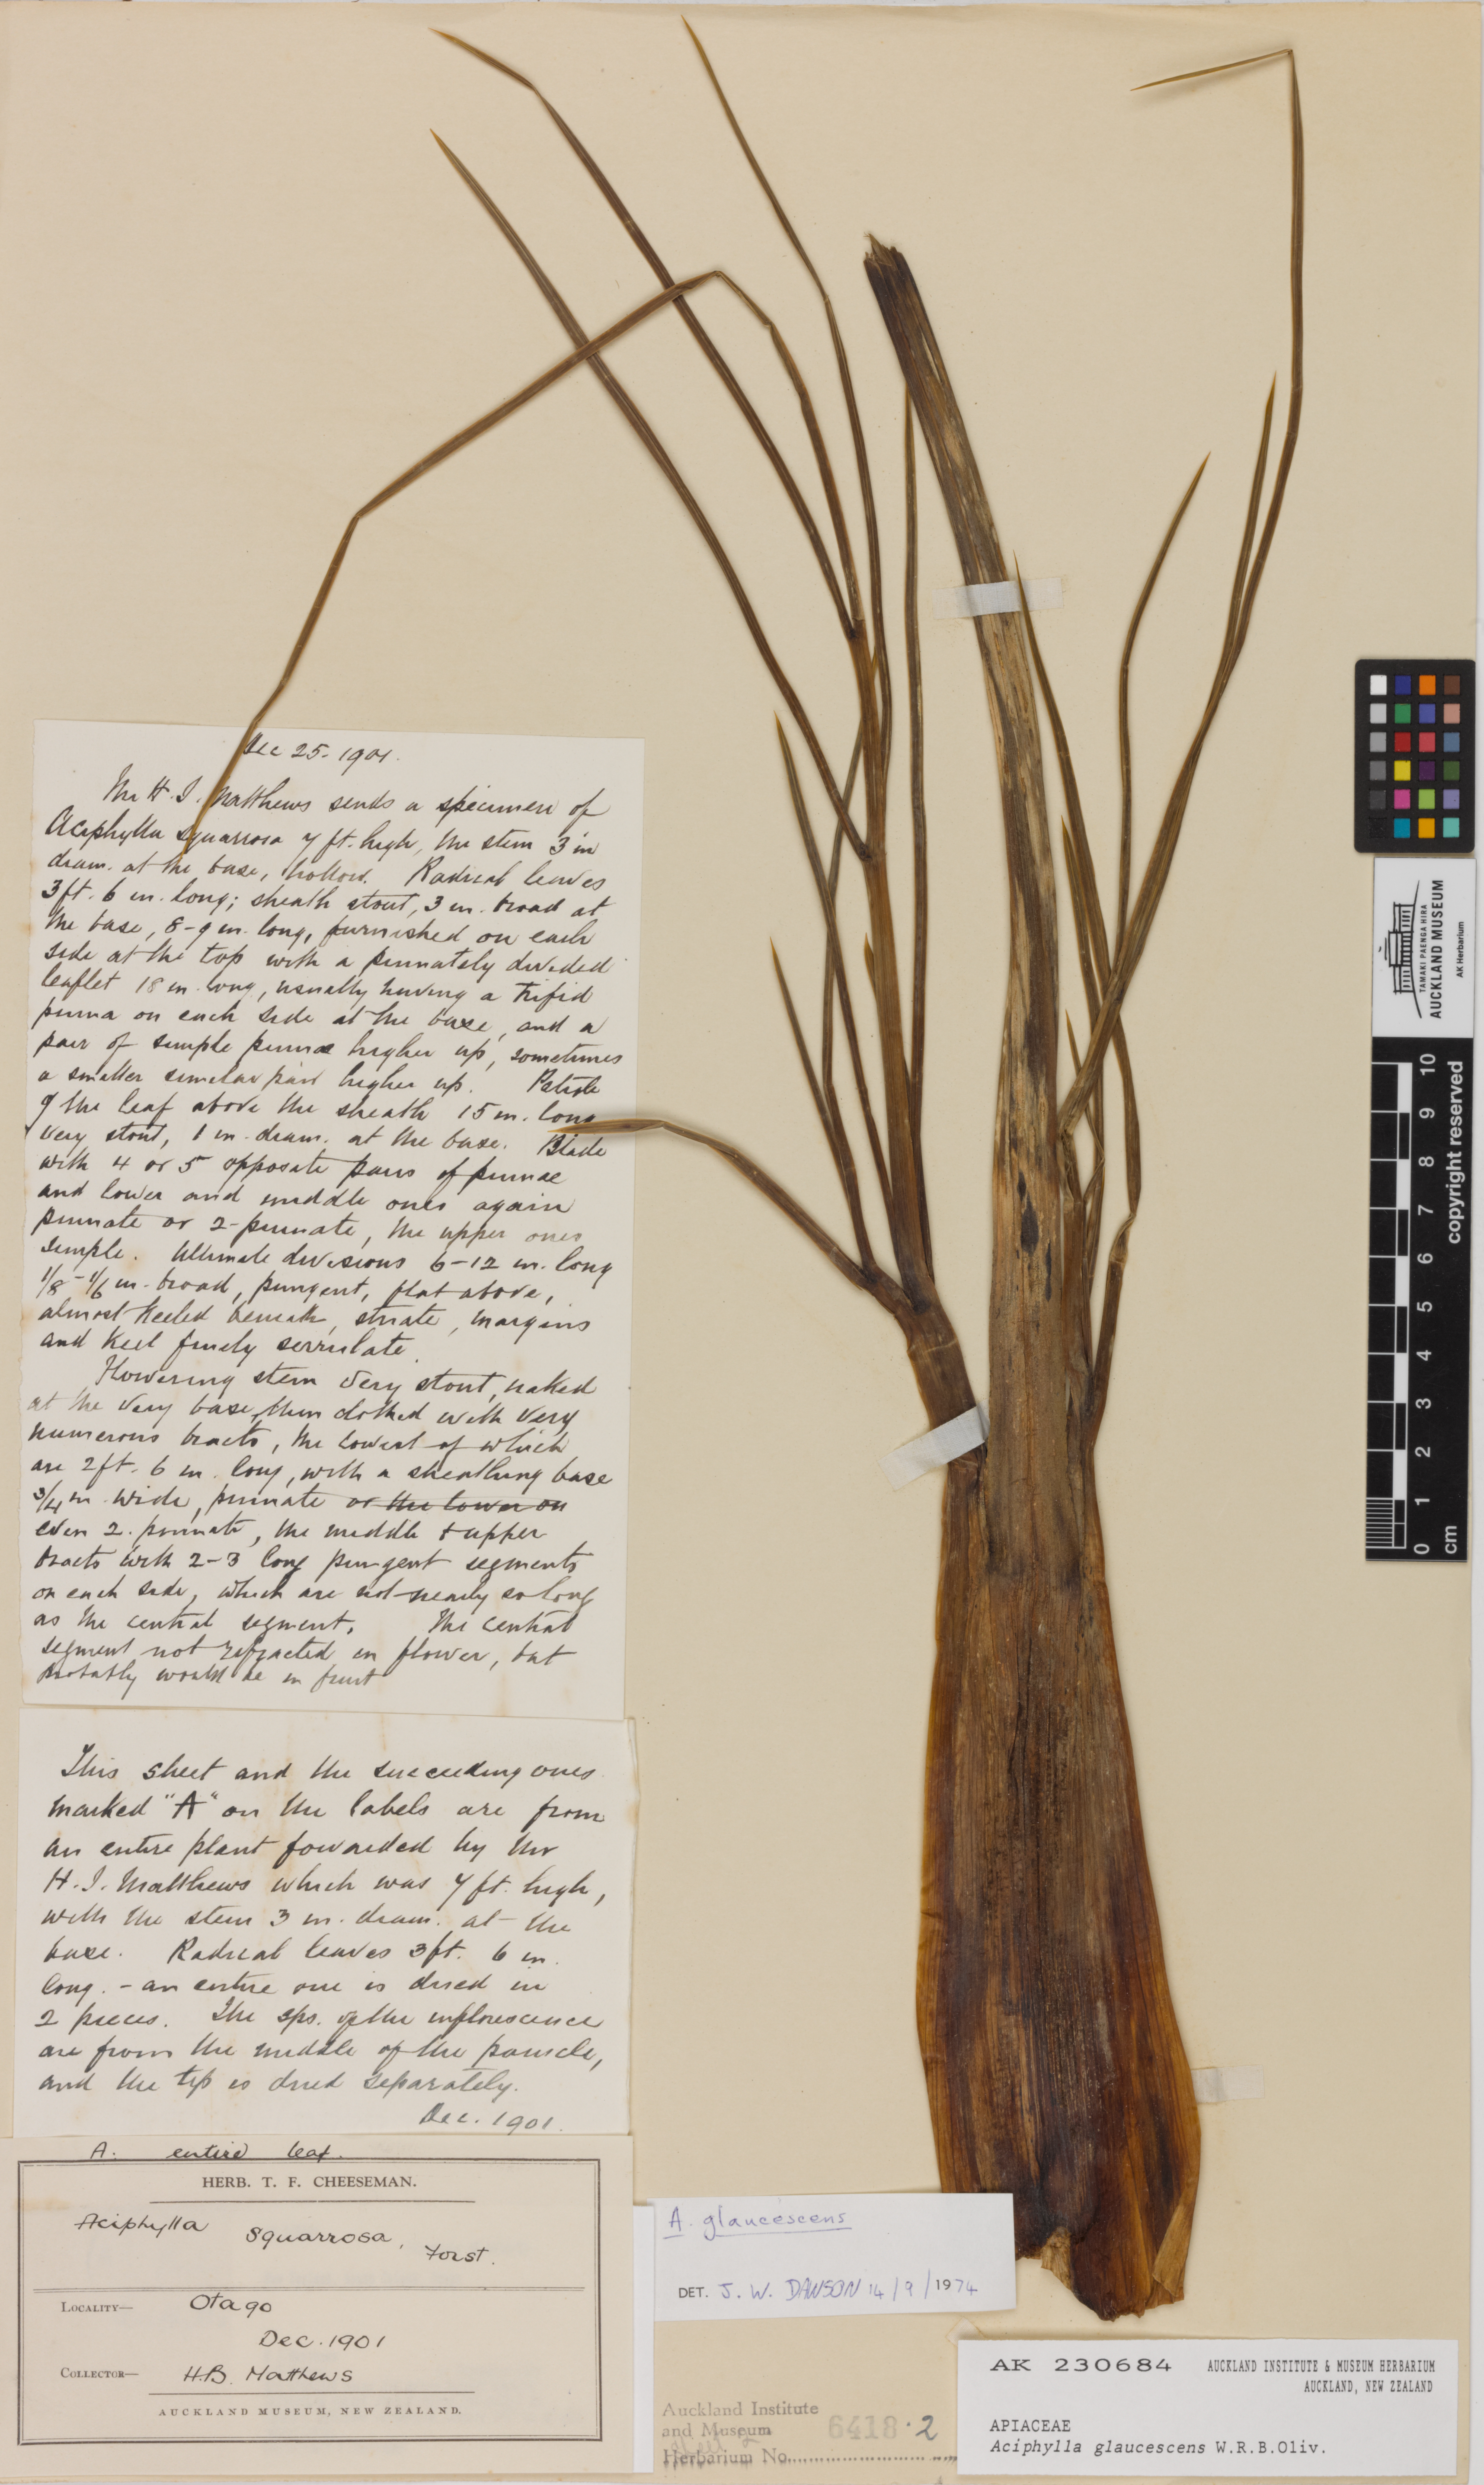 Dec 25. 1901.
Mr H. J. Matthews sends a specimen of
Aciphylla squarrosa 7 ft. high, the stem 3 in
diam. at the base, hollow. Radical leaves
3 ft. 6 in. long; sheath stout, 3 in. broad at
the base, 8-9 in. long, furnished on each
side at the top with a pinnately divided
leaflet 18 in. long, usually having a trifid
pinna on each side at the base, and a
pair of simple pinnae higher up, sometimes
a smaller similar pair higher up. Petiole
of the leaf above the sheath 15 in. long
very stout, 1 in. diam. at the base. Blade
with 4 or 5 opposite pairs of pinnae
and lower and middle ones again
pinnate or 2-pinnate, the upper ones
simple. Ultimate divisions 6-12 in. long
1/8-1/6 in. broad, pungent, flat above,
almost keeled beneath, striate, margins
and keel finely serrulate.
Flowering stem very stout, naked
at the very base, then clothed with very
numerous bracts, the lowest of which
are 2 ft. 6 in. long, with a sheathing base
3/4 in. wide, pinnate or the lower on
even 2. pinnate, the middle & upper
bracts with 2-3 long pungent segments
on each side, which are not nearly so long
as the central segment. The central
segment not refracted in flower, but
probably would be in fruit
This sheet and the succeeding ones
marked "A" on the labels are from
an entire plant fowarded by Mr
H. J. Matthews which was 7 ft. high,
with the stem 3 in. diam. at the
base. Radical leaves 3 ft. 6 in.
long. - an entire one is dried in
2 pieces. The sps. of the inflorescence
are from the middle of the panicle,
and the tip is dried separately.
Dec. 1901.
A. entire leaf.
HERB. T. F. CHEESEMAN.
Aciphylla squarrosa, Forst.
LOCALITY— Otago
Dec. 1901
COLLECTOR— H.B. Matthews
AUCKLAND MUSEUM, NEW ZEALAND.
A. glaucescens
DET. J. W. DAWSON 14/9/1974
Auckland Institute
and Museum
Herbarium No. 6418.2
sheet 2
AK 230684 AUCKLAND INSTITUTE & MUSEUM HERBARIUM
AUCKLAND, NEW ZEALAND
APIACEAE
Aciphylla glaucescens W.R.B.Oliv.
TAMAKI PAENGA HIRA
AUCKLAND MUSEUM
AK Herbarium
0 1 2 3 4 5 6 7 8 9 10
cm
copyright reserved